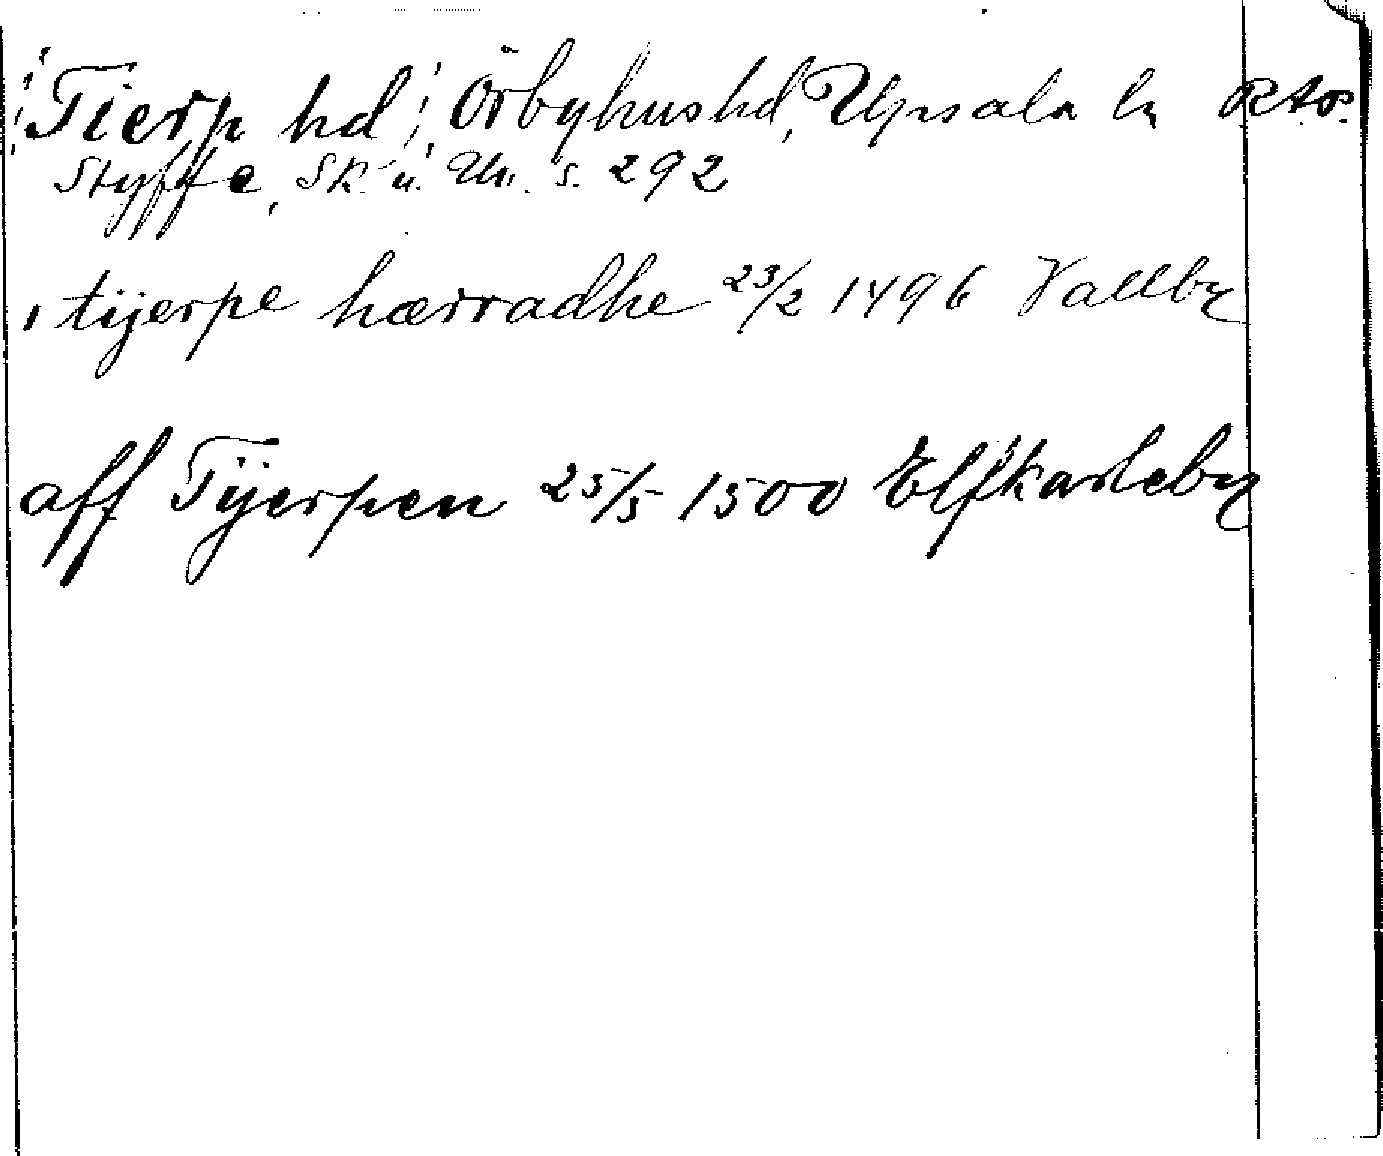 ¦Tierp hd¦ Örbyhus hd, Upsala ln RAp.
Styffe, Sk. u. Un. s. 292
i tijerpe hærradhe 23/2 1496 Vallby
aff Tÿerpen 25/5 1500 Elfkarleby